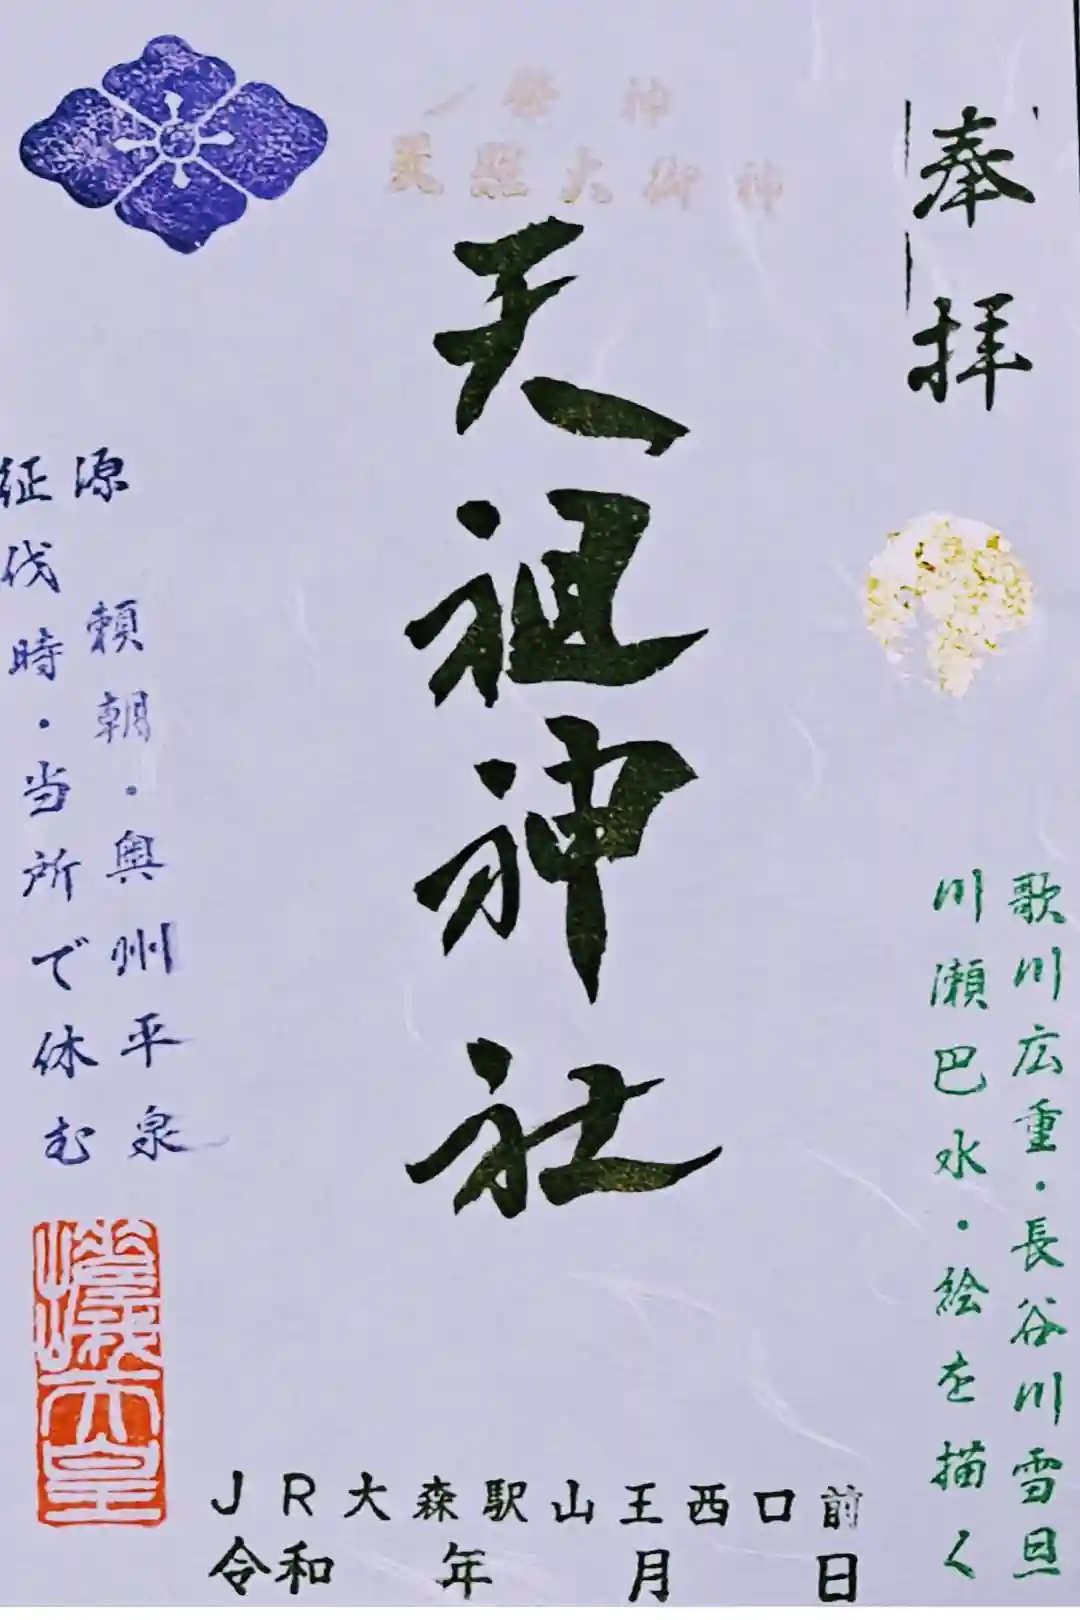 奉拝
歌川広重・長谷川雪旦
川瀬巴水・絵を描く
祭神
天照大御神
天祖神社
源頼朝・奥州平泉
征伐時・当所で休む
嵯峨天皇
JR大森駅山王西口前
令和 年 月 日